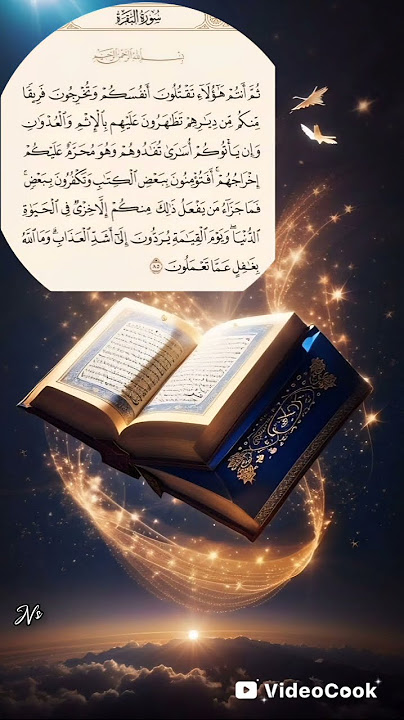 سُورَةُ البَقَرَةِ
بِسْمِ اللَّهِ الرَّحْمَٰنِ الرَّحِيمِ
ثُمَّ أَنتُمْ هَٰٓؤُلَآءِ تَقْتُلُونَ أَنفُسَكُمْ وَتُخْرِجُونَ فَرِيقًا
مِّنكُم مِّن دِيَٰرِهِمْ تَظَٰهَرُونَ عَلَيْهِم بِٱلْإِثْمِ وَٱلْعُدْوَٰنِ
وَإِن يَأْتُوكُمْ أُسَٰرَىٰ تُفَٰدُوهُمْ وَهُوَ مُحَرَّمٌ عَلَيْكُمْ
إِخْرَاجُهُمْ ۚ أَفَتُؤْمِنُونَ بِبَعْضِ ٱلْكِتَٰبِ وَتَكْفُرُونَ بِبَعْضٍ ۚ
فَمَا جَزَآءُ مَن يَفْعَلُ ذَٰلِكَ مِنكُمْ إِلَّا خِزْىٌ فِى ٱلْحَيَوٰةِ
ٱلدُّنْيَا ۖ وَيَوْمَ ٱلْقِيَٰمَةِ يُرَدُّونَ إِلَىٰٓ أَشَدِّ ٱلْعَذَابِ ۗ وَمَا ٱللَّهُ
بِغَٰفِلٍ عَمَّا تَعْمَلُونَ ٨٥
Ns
VideoCook